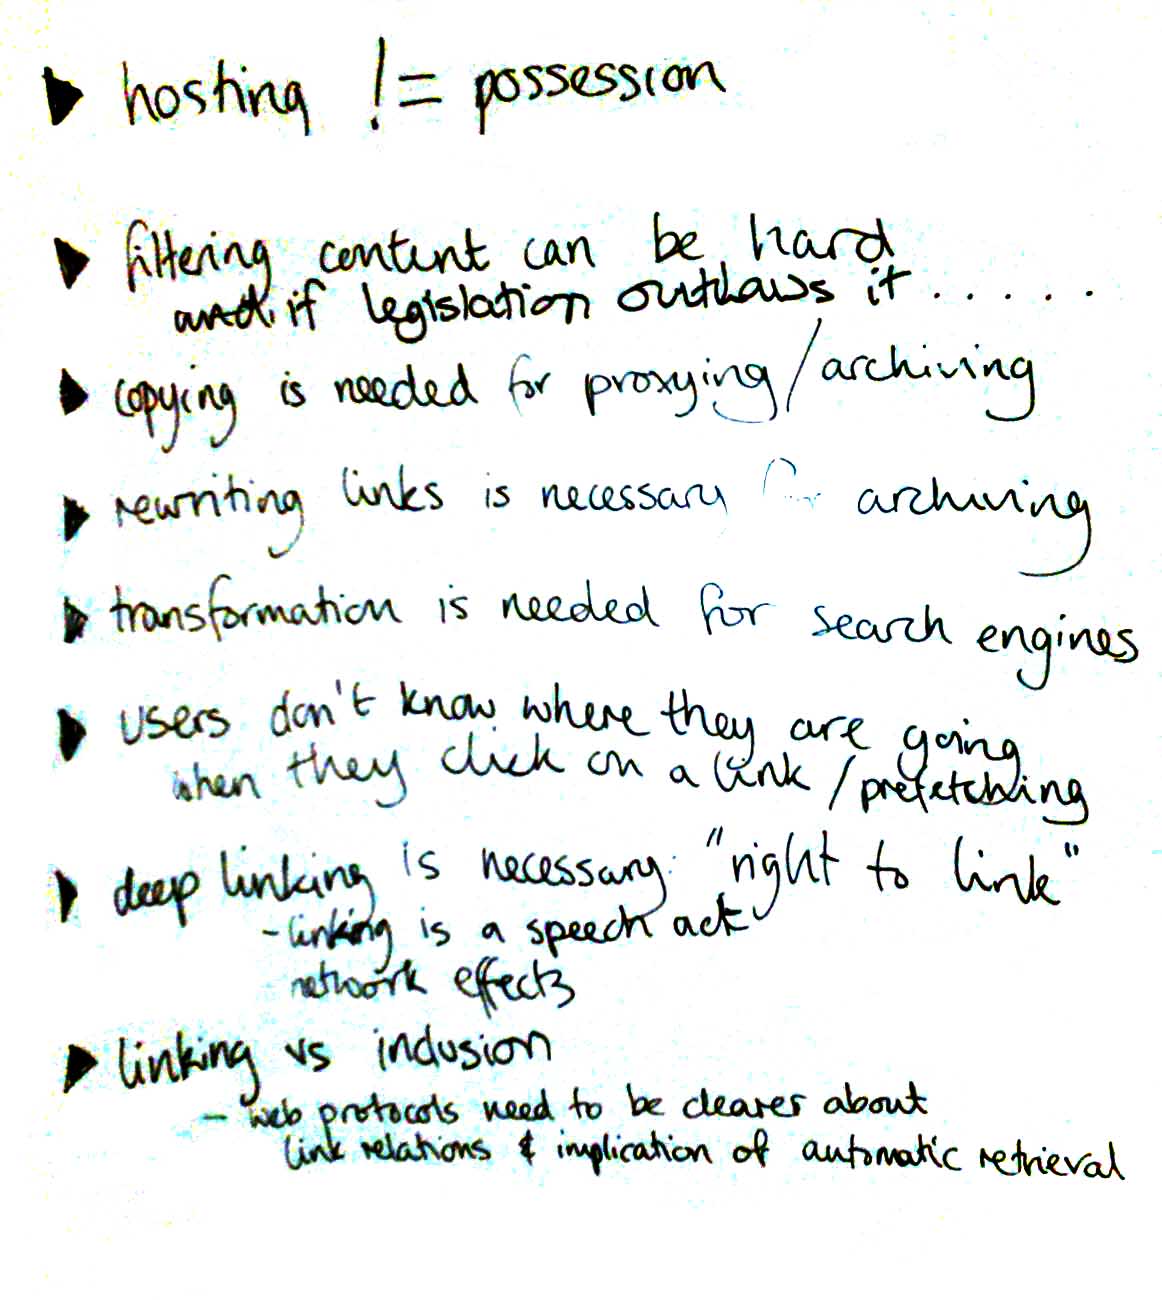 ▶ hosting != possession
▶ filtering content can be hard
and if legislation outlaws it . . . . .
▶ copying is needed for proxying / archiving
▶ rewriting links is necessary for archiving
▶ transformation is needed for search engines
▶ users don't know where they are going
when they click on a link / prefetching
▶ deep linking is necessary. "right to link"
- linking is a speech act
network effects
▶ linking vs inclusion
- web protocols need to be clearer about
link relations & implication of automatic retrieval